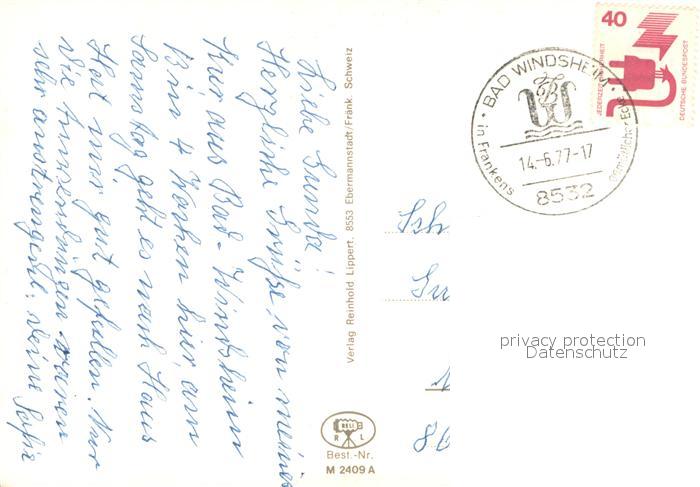 Liebe Gunda!
Herzliche Grüße, von meiner
Kur aus Bad-Windsheim
Bin 4 Wochen hier, am
Samstag geht es nach Haus
Hat mir gut gefallen. Nur
die Anwendungen waren
sehr anstrengend. Deine Sofie
Verlag Reinhold Lippert. 8553 Ebermannstadt/Fränk. Schweiz
RELI
R L
Best.-Nr.
M 2409 A
40
JEDERZEIT SICHERHEIT
DEUTSCHE BUNDESPOST
BAD WINDSHEIM
14.-6.77-17
8532
in Frankens gemütlicher Ecke
Sch
Gu
86
privacy protection
Datenschutz